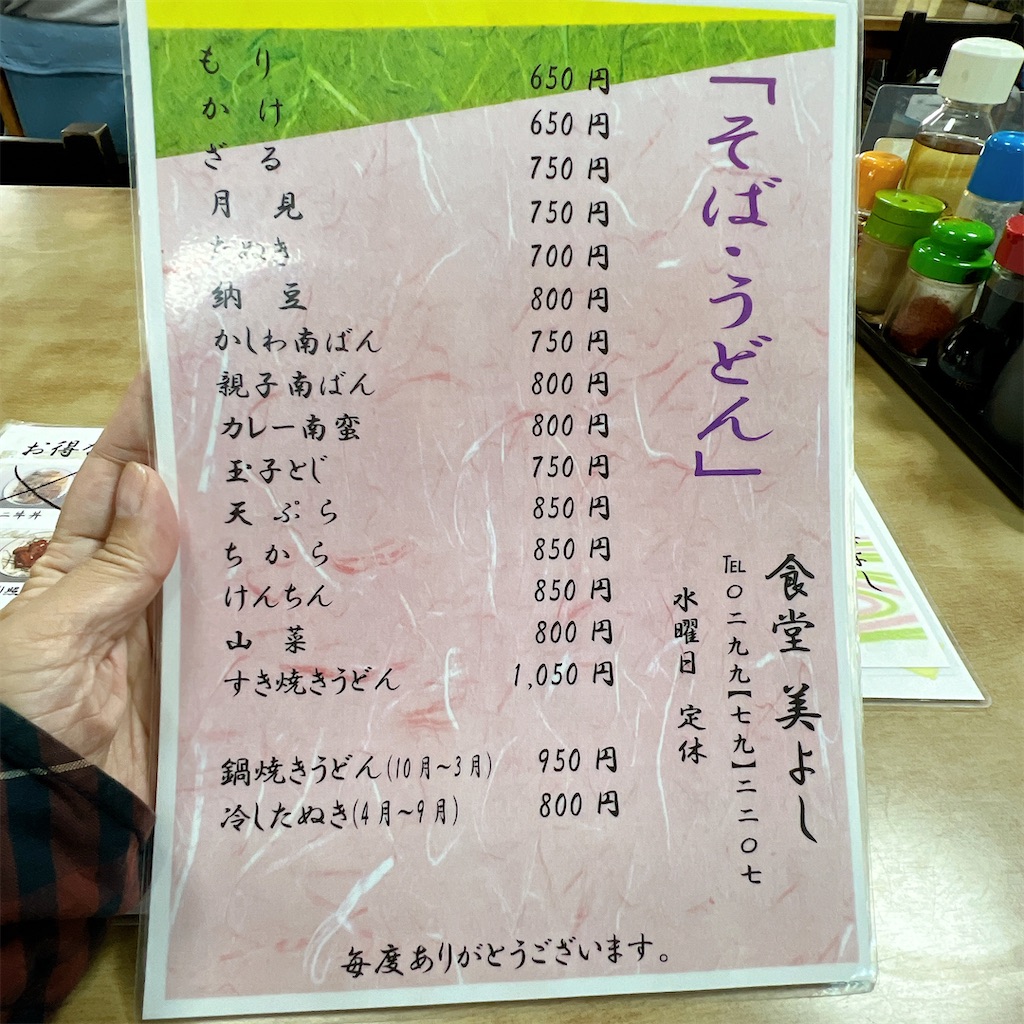 「そば・うどん」
もり 650円
かけ 650円
ざる 750円
月見 750円
たぬき 700円
納豆 800円
かしわ南ばん 750円
親子南ばん 800円
カレー南蛮 800円
玉子とじ 750円
天ぷら 850円
ちから 850円
けんちん 850円
山菜 800円
すき焼きうどん 1,050円
鍋焼きうどん(10月〜3月) 950円
冷したぬき(4月〜9月) 800円
食堂 美よし
TEL〇二九九【七九】二二〇七
水曜日 定休
毎度ありがとうございます。
お得